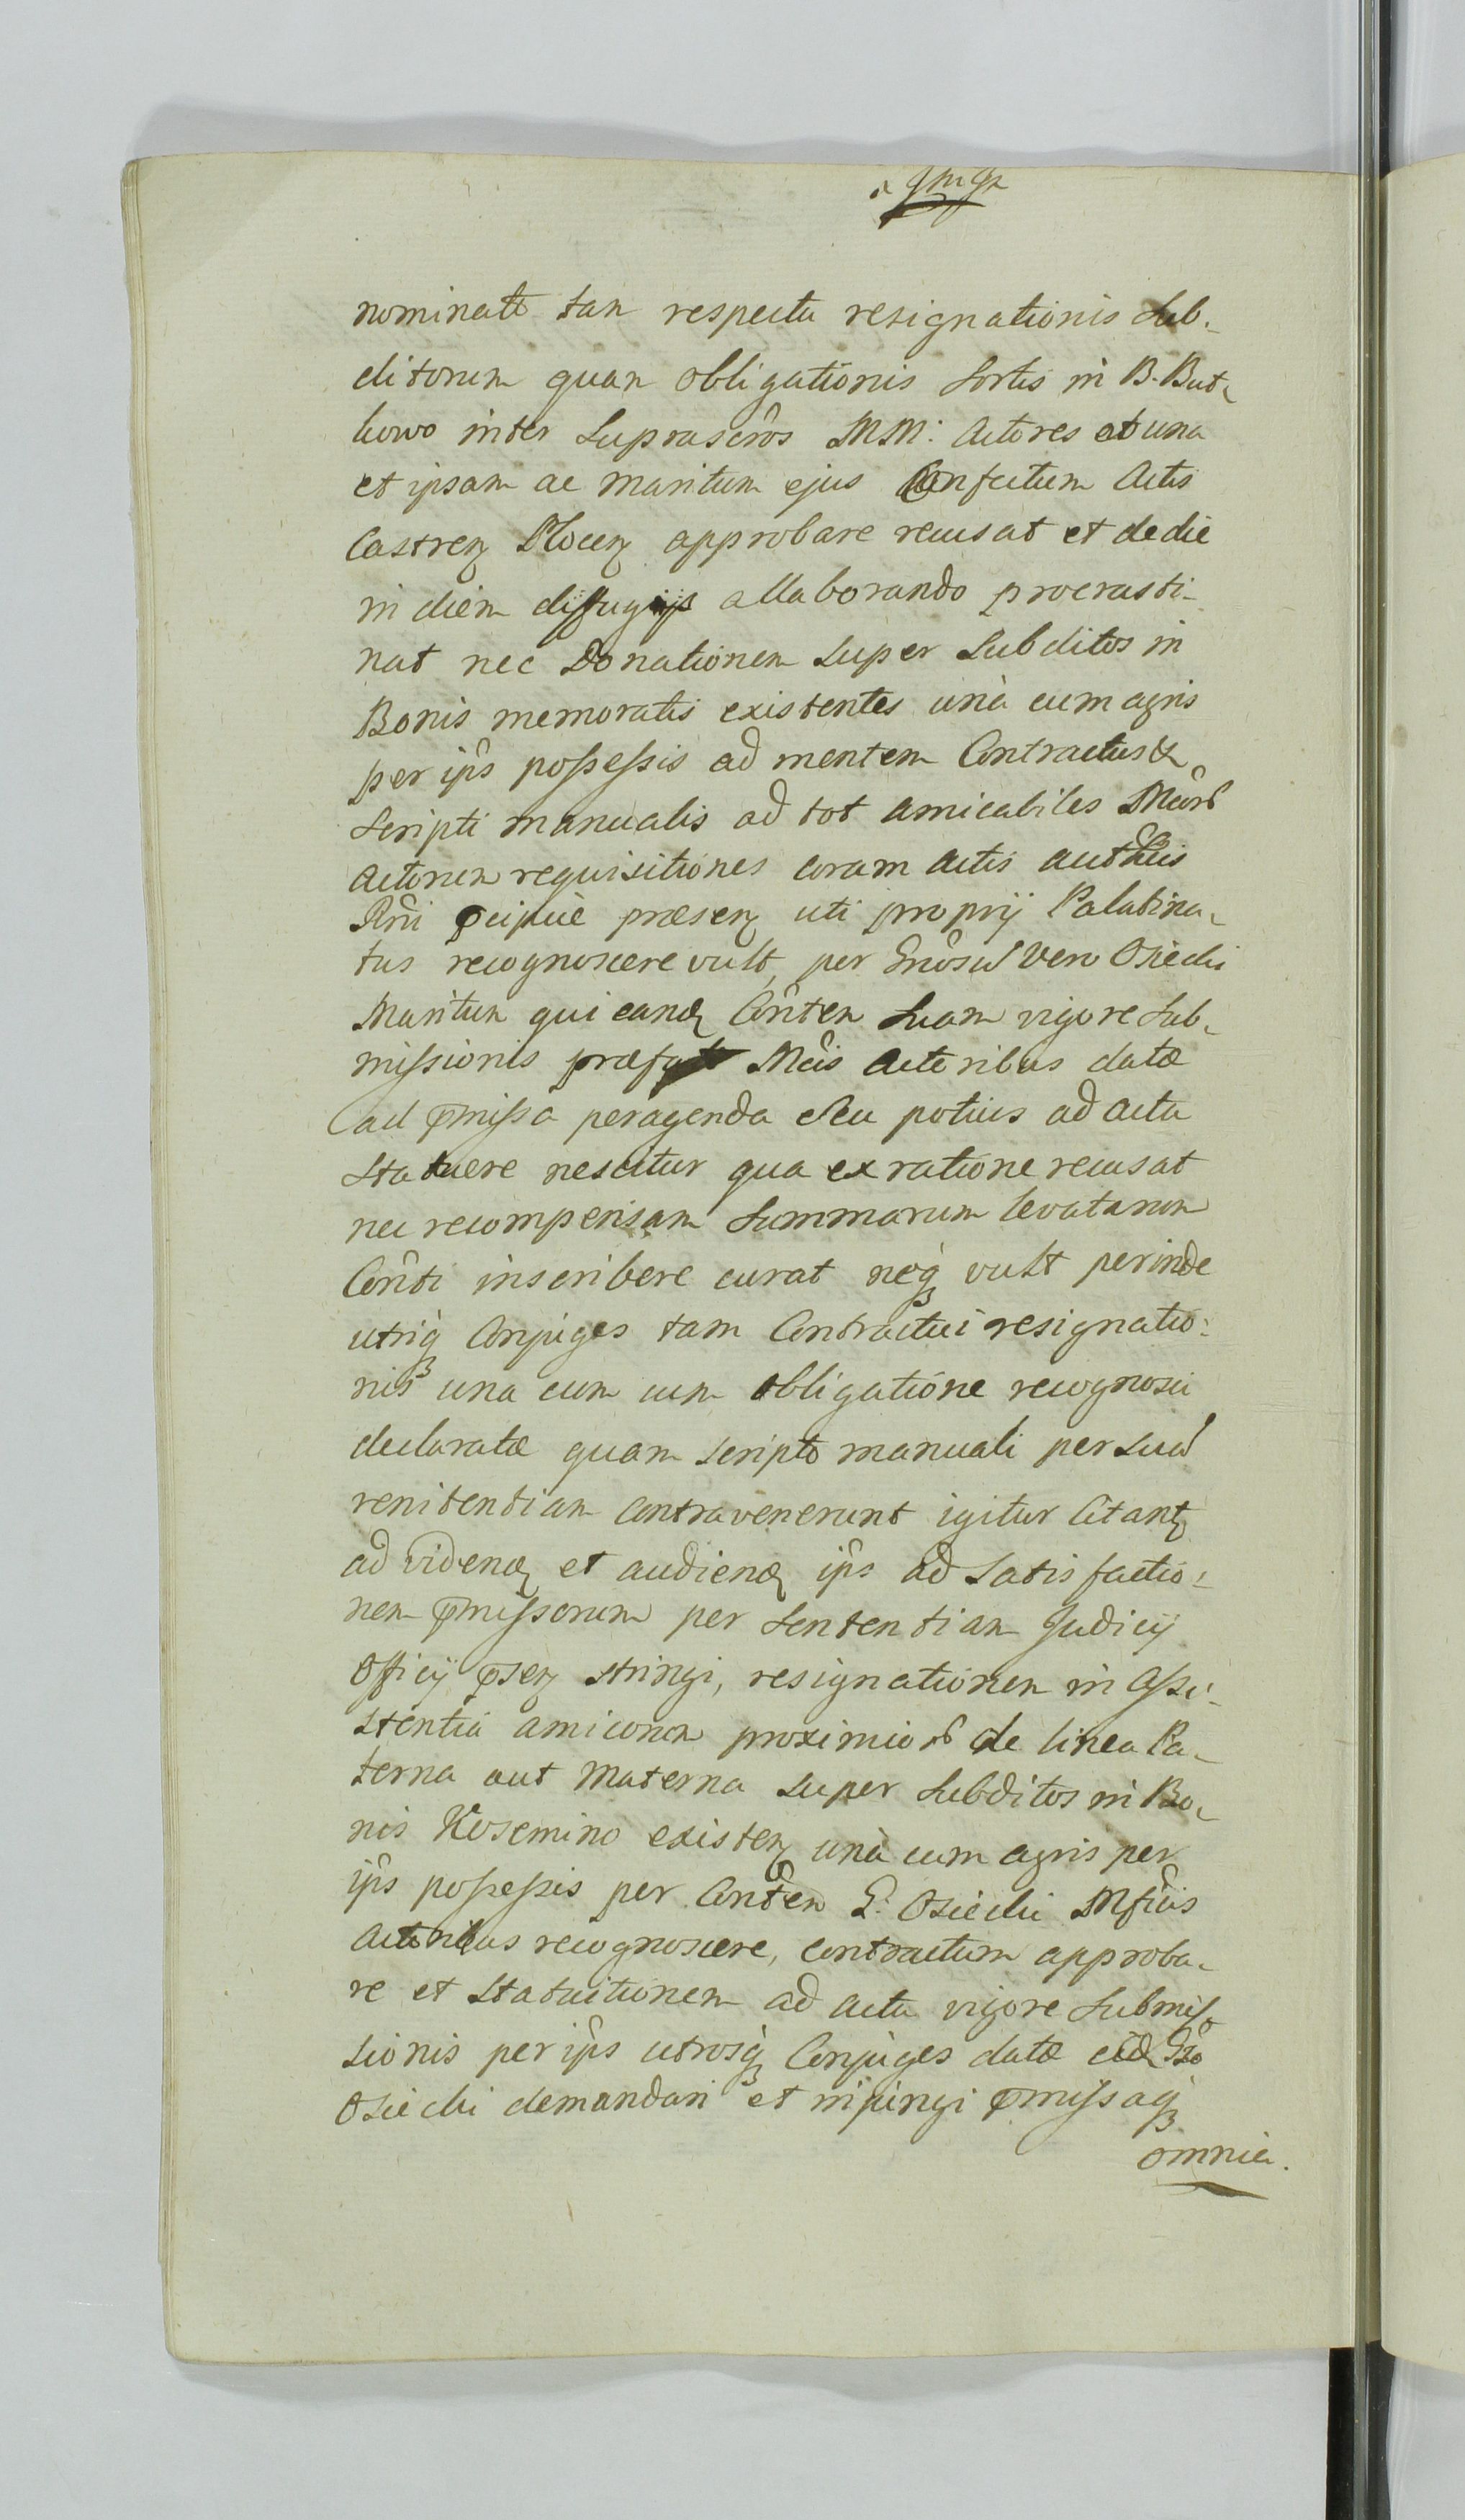 nominato tam respectu resignationis Sub-
ditorum quam obligationis Sortis in B. But-
kowo inter Suprascrõs MM: Actores et una
et ipsam ac Maritum ejus Confectum Actis
Castreñ Ploceñ approbare recusat et de die
in diem diffugijs allaborando procrasti-
nat nec Donationem super Subditos in
Bonis memoratis existentes unà cum agris
per ip̃s possessis ad mentem Contractus &
Scripti manualis ad tot amicabiles Mcor̃
Actorum requisitiones coram Actis authẽis
Rñi p̃cipue præseñ uti proprij Palatina-
tus recognoscere vult, per Gnõsũ vero Osiecki
Maritum qui eand̃ Cõntem Suam vigore Sub-
missionis præfat Mcis Actoribus datæ
ad p̃missa peragenda seu potius ad acta
Statuere nescitur qua ex ratione recusat
nec recompensam Summarum levatarum
Cõnti inscribere curat neq̃ vult perinde
utriq̃ Conjuges tam Contractui resignatio:
nis una cum cum obligatione recognosci
declaratæ quam scripto manuali per suã
renitentiam Contravenerunt igitur Citant̃
ad videnđ et audienđ ip̃s ad Satisfactio:
nem p̃missorum per Sententiam Judicij
Officij p̃señ stringi, resignationem in Assi-
stentia amicorum proximior̃ de linea Pa-
terna aut Materna super Subditos in Bo-
nis Kosemino existeñ unà cum agris per
ip̃s possessis per Cõntem G: Osiecki Mficis
Actoribus recognoscere, contractum approba-
re et Statuitionem ad acta vigore Submis-
sionis per ip̃s utrosq̃ Conjuges datæ eid̃ Gso
Osiecki demandari et inpingi p̃missaq̃
omnia.